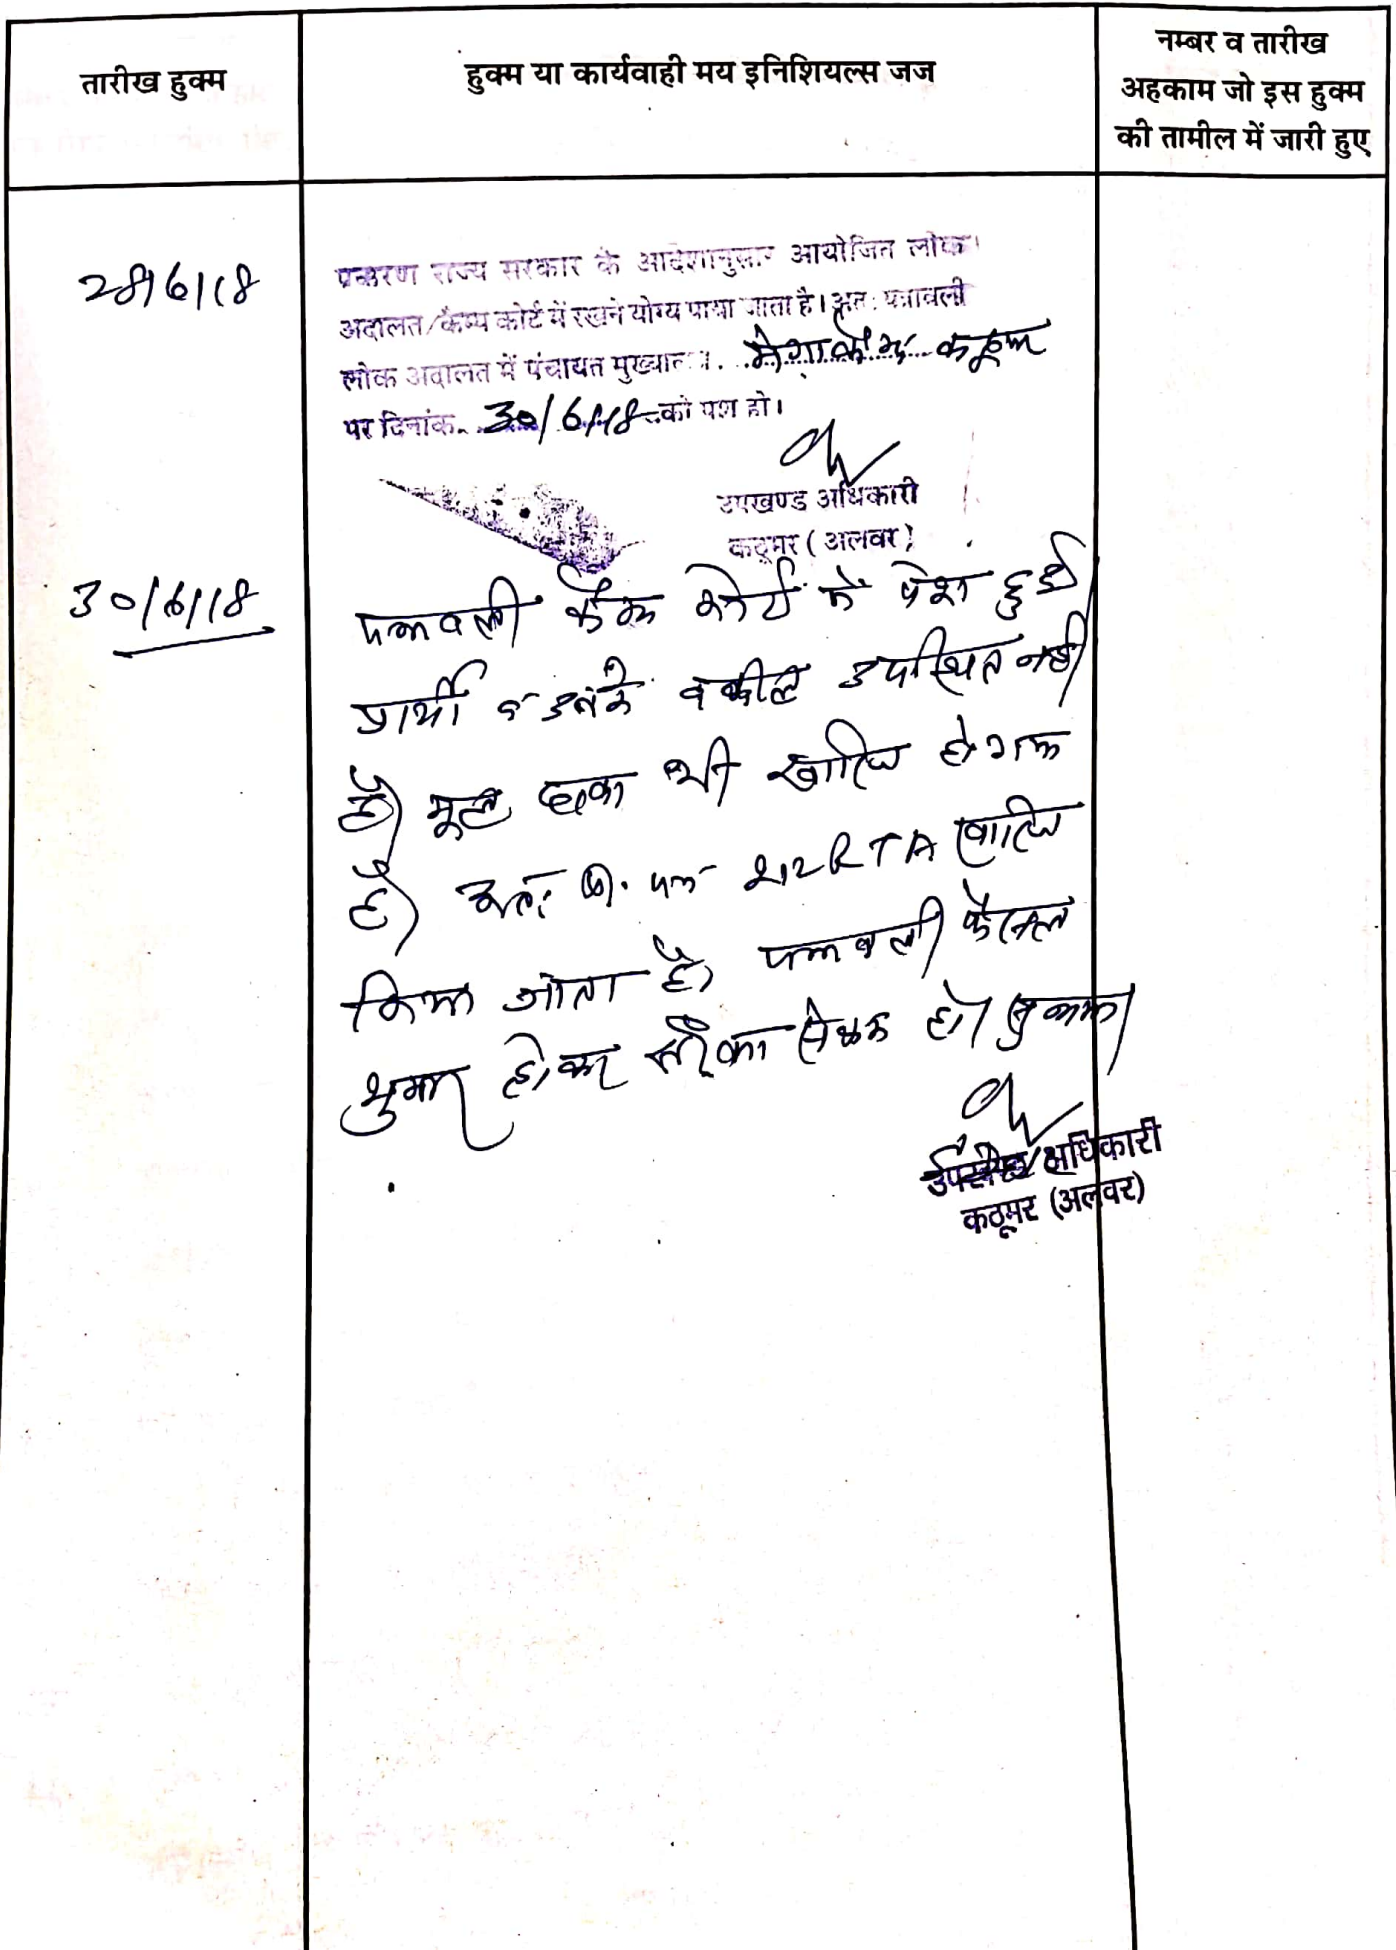 तारीख हुक्म
हुक्म या कार्यवाही मय इनिशियल्स जज
नम्बर व तारीख
अहकाम जो इस हुक्म
की तामील में जारी हुए
28/6/18
प्रकरण राज्य सरकार के आदेशानुसार आयोजित लोक
अदालत/कैम्प कोर्ट में रखने योग्य पाया जाता है। अतः पत्रावली
लोक अदालत में पंचायत मुख्यालय मेगा कैम्प कठूमर
पर दिनांक 30/6/18 को पेश हो।
उपखण्ड अधिकारी
कठूमर (अलवर)
30/6/18
पत्रावली कैम्प कोर्ट में पेश हुई
प्रार्थी व उनके वकील उपस्थित नहीं
है। मूल दावा भी खारिज हो गया
है। अतः प्रा. पत्र 212 RTA खारिज
किया जाता है। पत्रावली फैसल
शुमार होकर
उपखण्ड अधिकारी
कठूमर (अलवर)